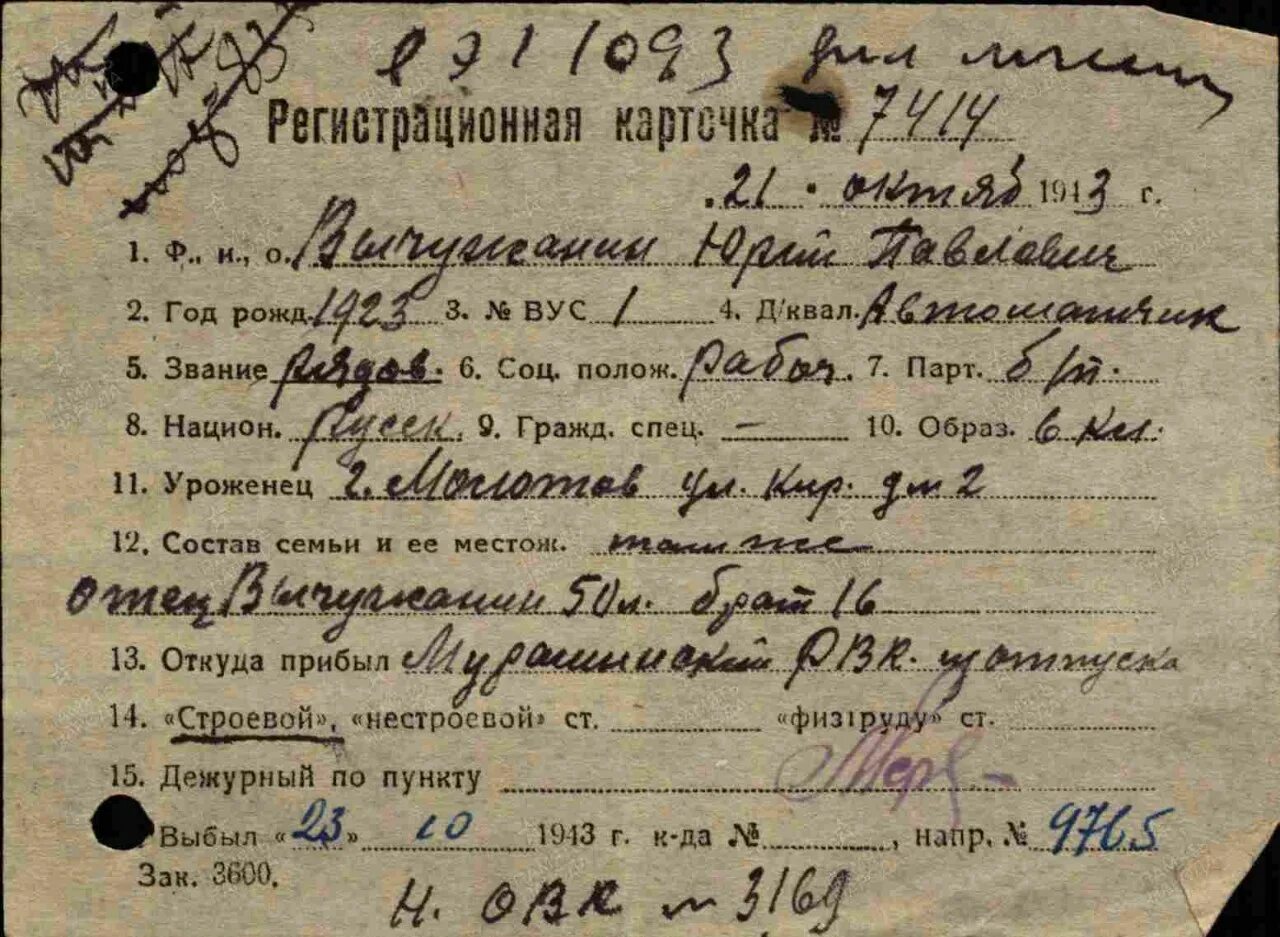 1093
Регистрационная карточка № 7414
21. октяб 1943 г.
1. Ф., и., о. Вычужанин Юрий Павлович
2. Год рожд. 1923 3. № ВУС 1 4. Д/квал. Автоматчик
5. Звание рядов. 6. Соц. полож. Рабоч. 7. Парт. б/п.
8. Национ. Русск. 9. Гражд. спец. — 10. Образ. 6 кл.
11. Уроженец г. Молотов ул. Кир. дм 2
12. Состав семьи и ее местож. там же
отец Вычужанин 50 л. брат 16
13. Откуда прибыл Мурашинский РВК. из отпуска
14. «Строевой», «нестроевой» ст. «физтруду» ст.
15. Дежурный по пункту
Выбыл «23» 10 1943 г. к-да №, напр. № 9765
Зак. 3600.
Н. ОВК № 3169